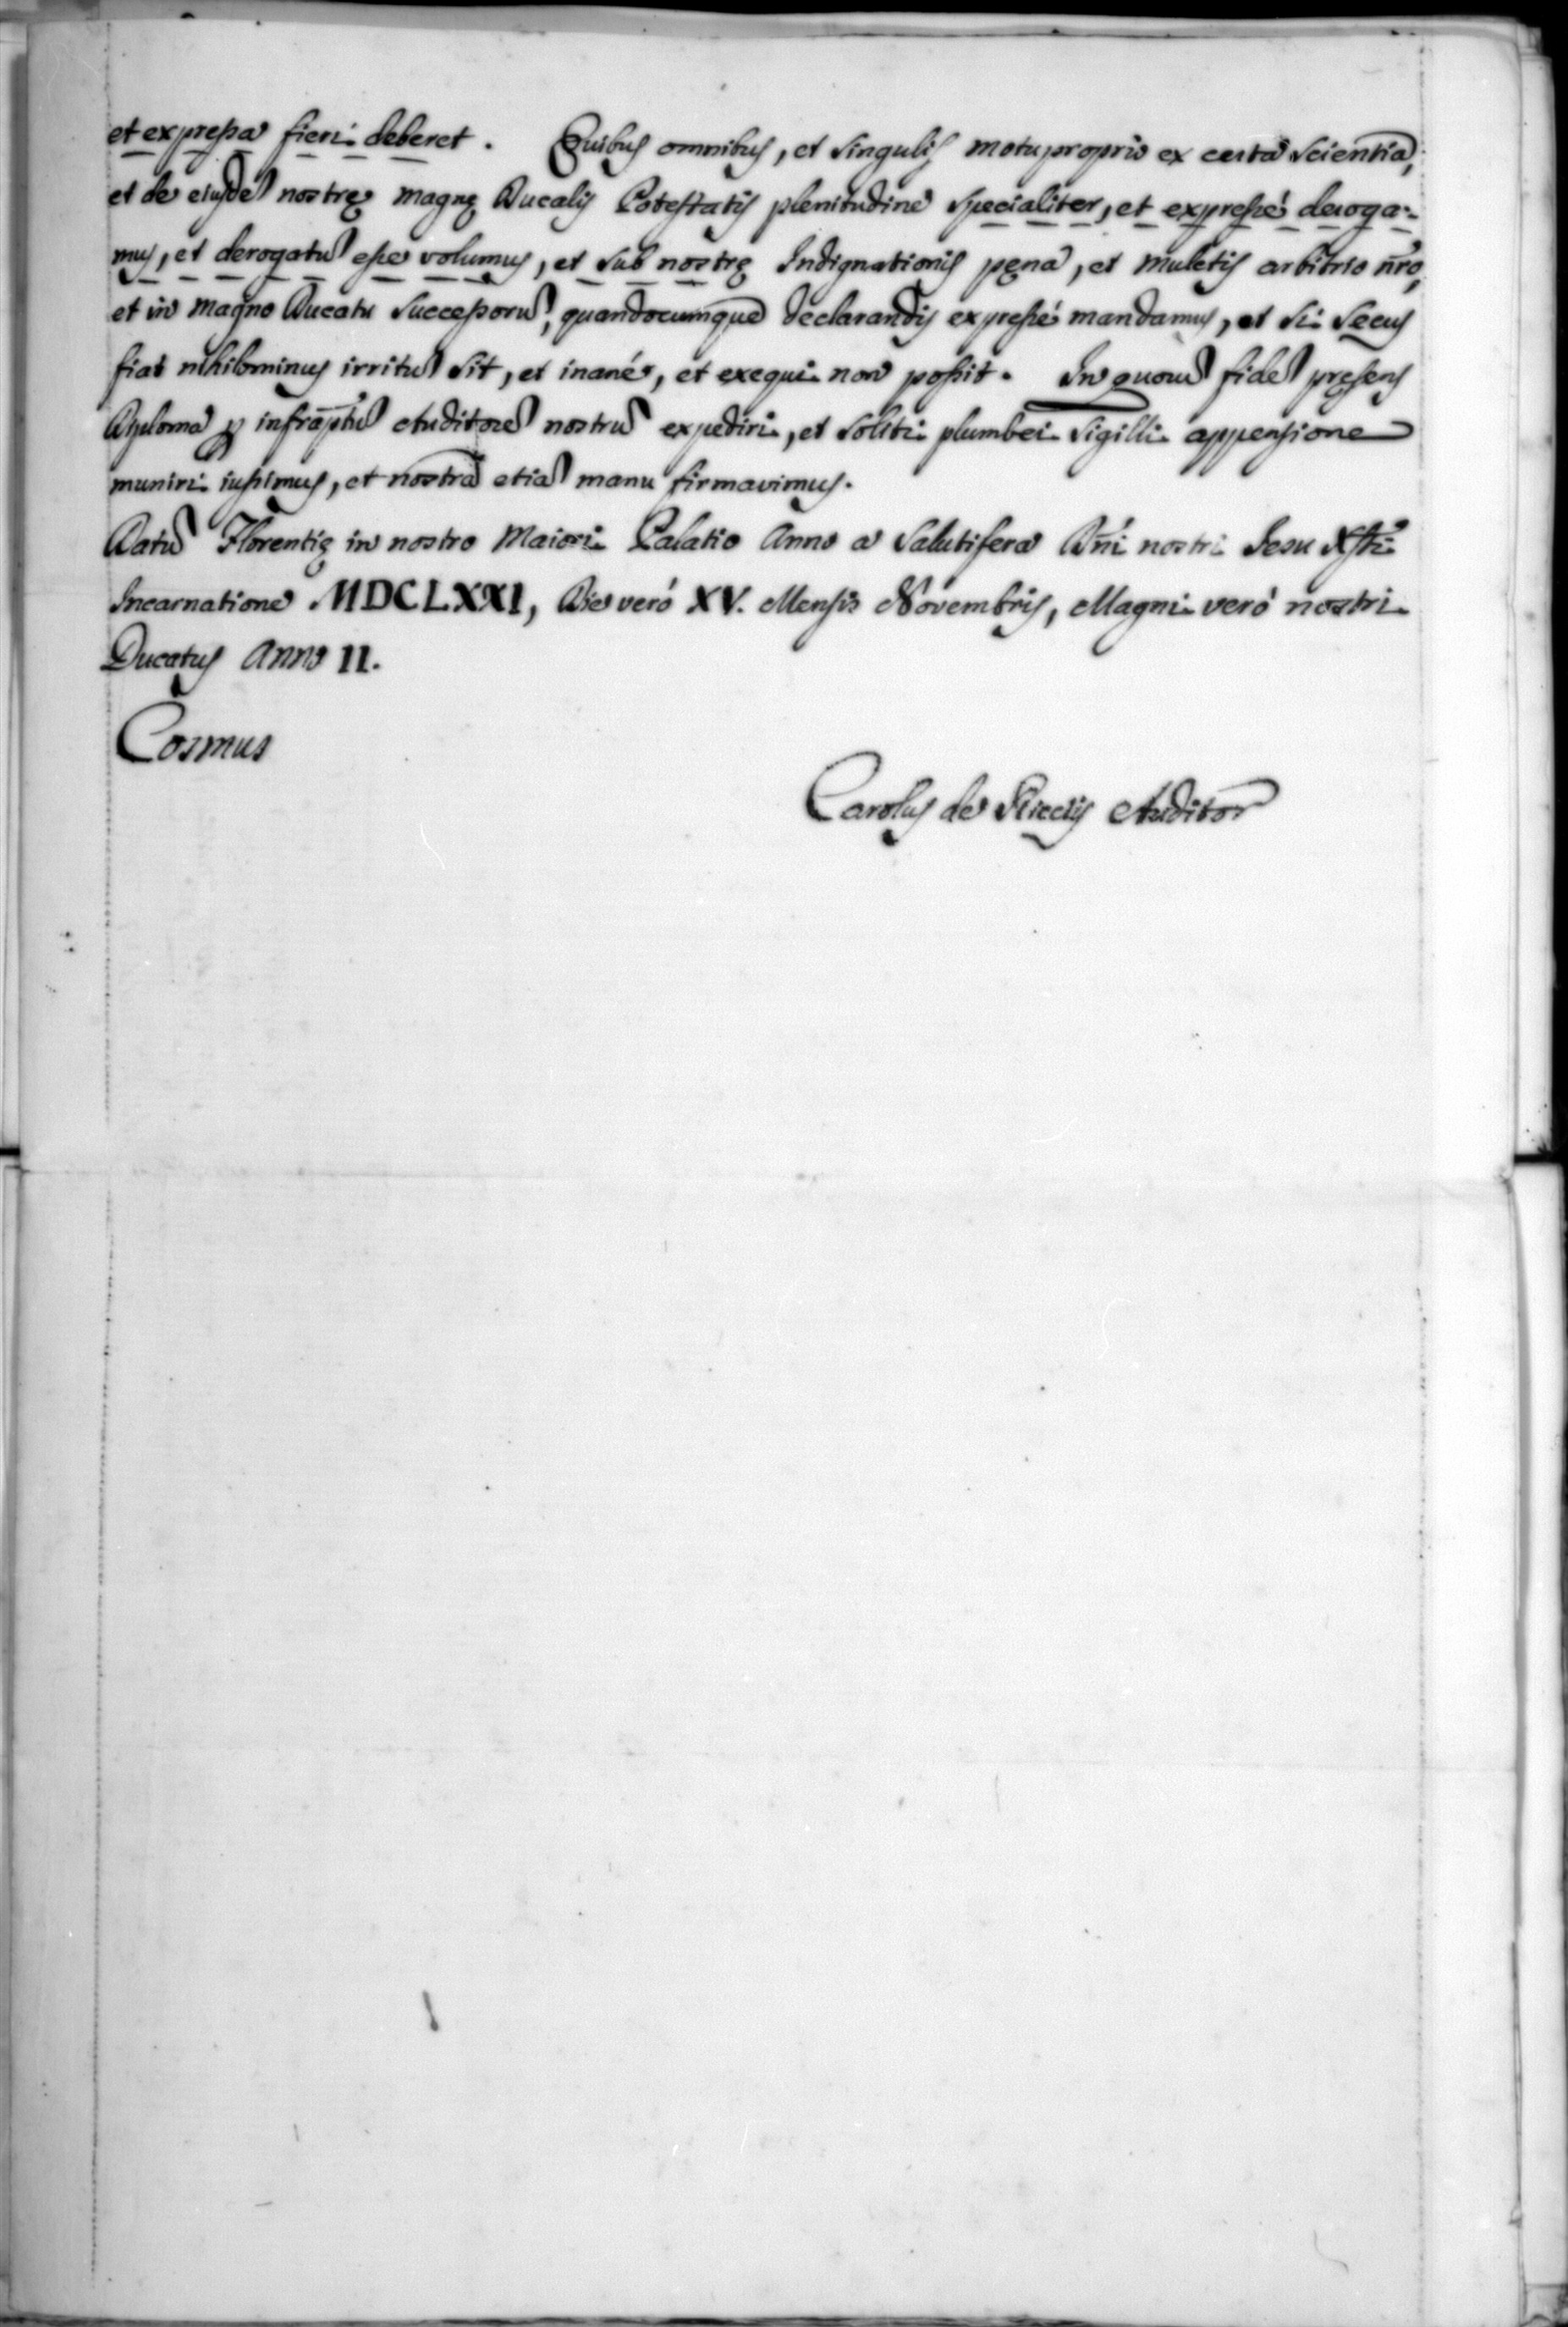 et expressa fieri deberet. Quibus omnibus, et singulis motuproprio ex certa scientia,
et de eiusdē nostrę Magnę Ducalis Potestatis plenitudine specialiter, et expressé deroga-
mus, et derogatū esse volumus, et sub nostrę Indignationis pęna, et mulctis arbitrio nr̃o,
et in Magno Ducatu successorū, quandocumque declarandis expressé mandamus, et si secus
fiat nihilominus irritū sit, et inane, et exequi non possit. In quorū fidē pręsens
Diploma ꝑ infrap̃tū Auditorē nostrū expediri, et soliti plumbei sigilli appensione
muniri iussimus, et nostra etiā manu firmavimus.
Datū Florentię in nostro Maiori Palatio Anno a salutifera Dñi nostri Jesu Xp̃ti
Incarnatione MDCLXXI, Die veró XV. Mensis Novembris, Magni veró nostri
Ducatus Anno II.
Cosmus
Carolus de Ricciis Auditor